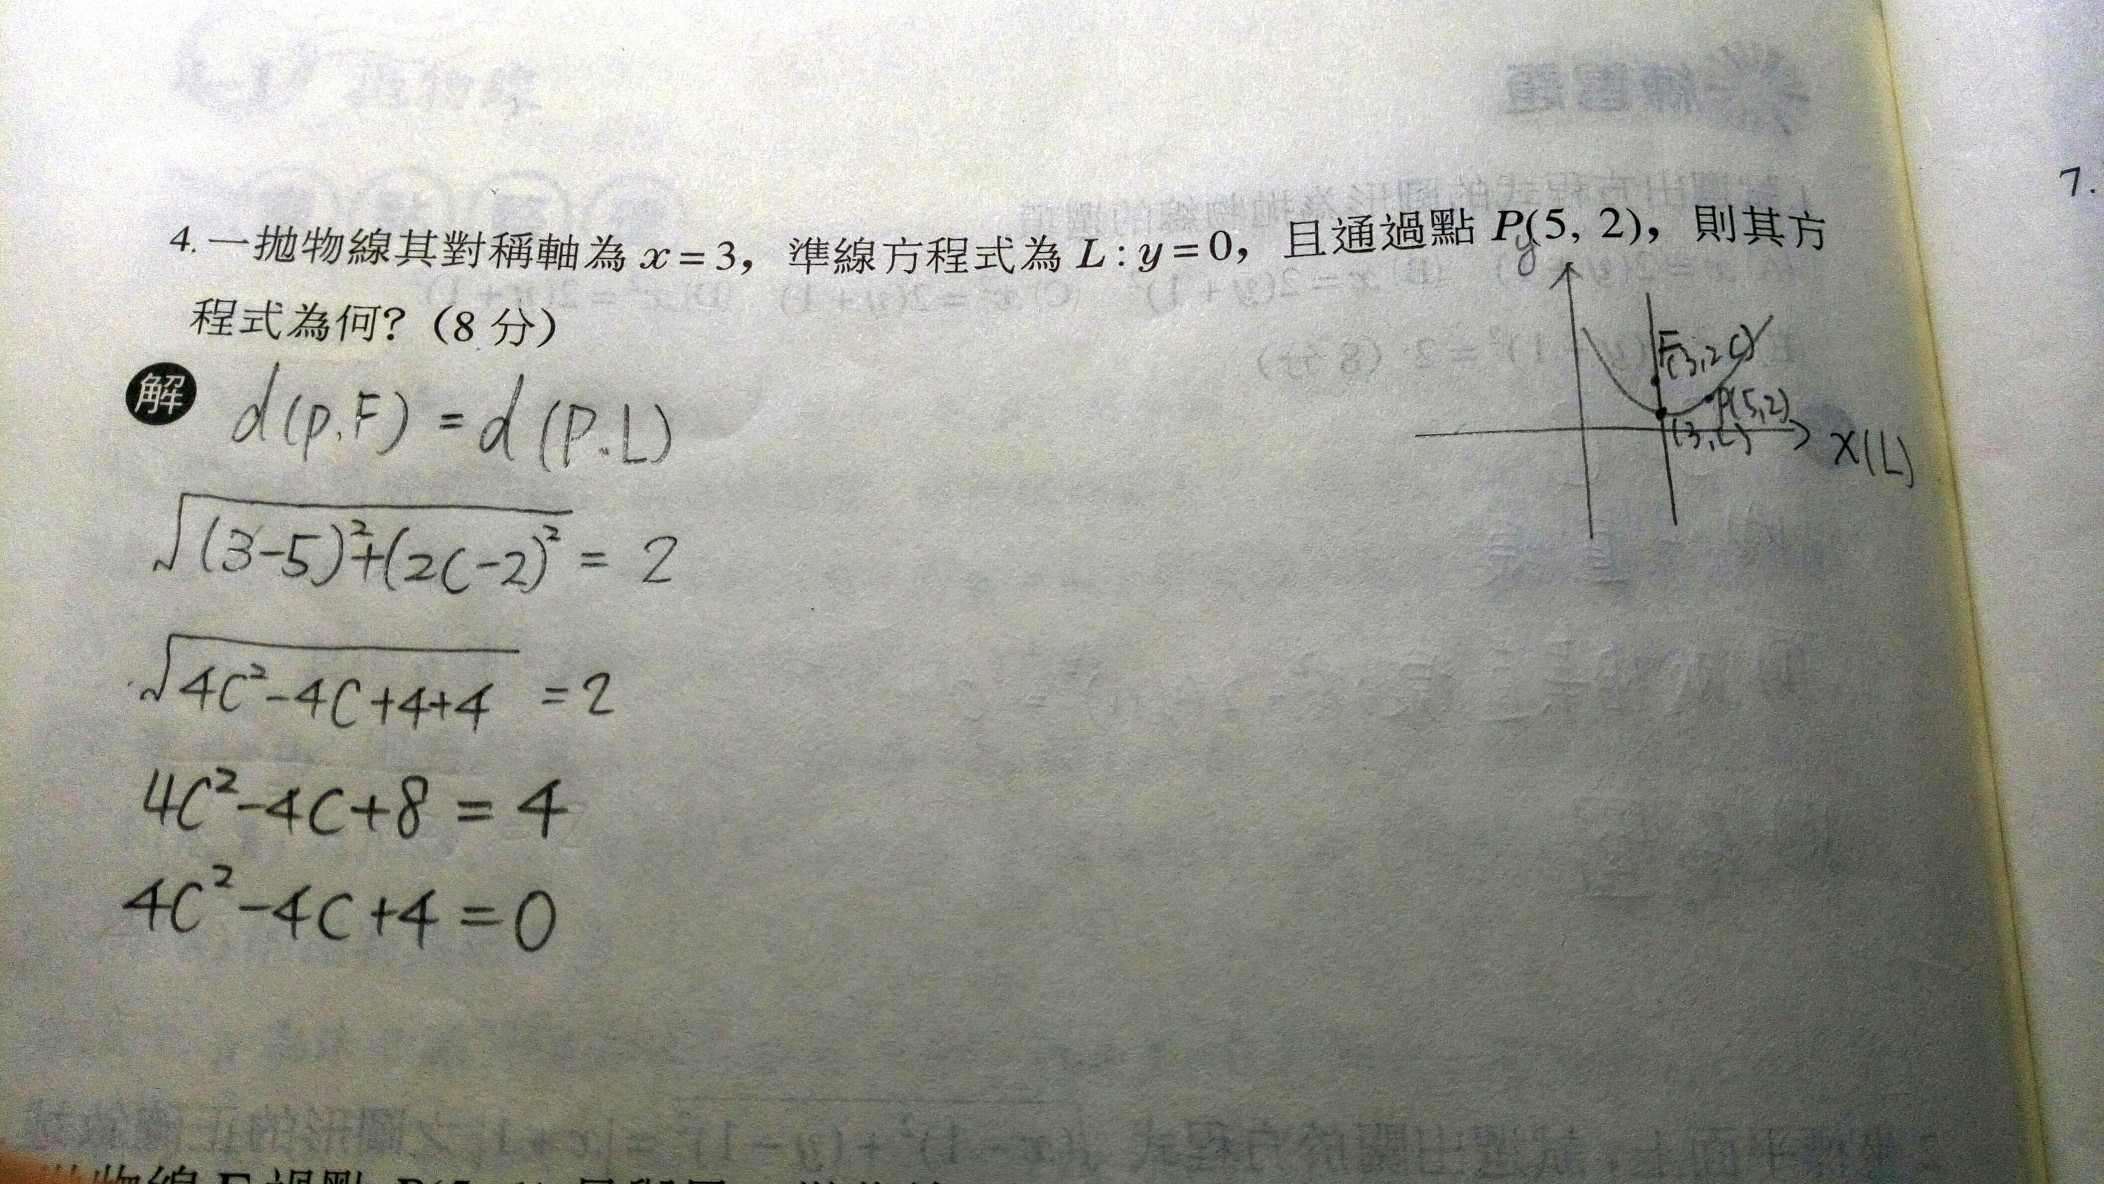 4. 一拋物線其對稱軸為 x = 3，準線方程式為 L : y = 0，且通過點 P(5, 2)，則其方
程式為何？(8 分)
y
F(3,2c)
P(5,2)
(3,c)
x(L)
解 d(P,F) = d(P,L)
√(3-5)²+(2c-2)² = 2
√4c²-4c+4+4 = 2
4c²-4c+8 = 4
4c²-4c+4 = 0
7.